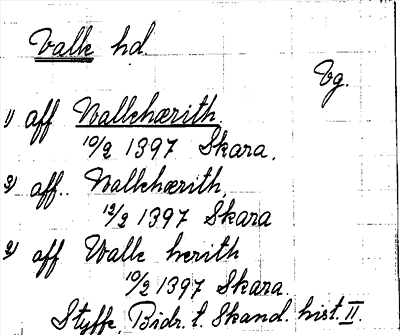 Valle hd.
Vg.
1) aff Wallehærith.
10/2 1397 Skara.
3) aff.. Wallehærith,
12/2 1397 Skara
2) aff Walle herith
10/2 1397 Skara.
Styffe, Bidr. t. Skand. hist. II.